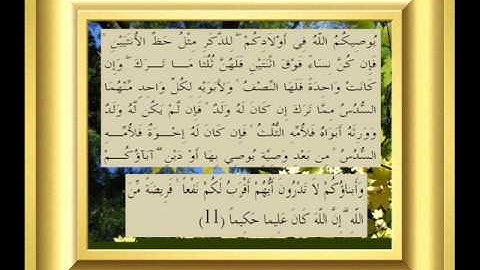 يُوصِيكُمُ اللّهُ فِي أَوْلاَدِكُمْ لِلذَّكَرِ مِثْلُ حَظِّ الأُنثَيَيْنِ
فَإِن كُنَّ نِسَاءً فَوْقَ اثْنَتَيْنِ فَلَهُنَّ ثُلُثَا مَا تَرَكَ وَإِن
كَانَتْ وَاحِدَةً فَلَهَا النِّصْفُ وَلأَبَوَيْهِ لِكُلِّ وَاحِدٍ مِّنْهُمَا
السُّدُسُ مِمَّا تَرَكَ إِن كَانَ لَهُ وَلَدٌ فَإِن لَّمْ يَكُن لَّهُ وَلَدٌ
وَوَرِثَهُ أَبَوَاهُ فَلأُمِّهِ الثُّلُثُ فَإِن كَانَ لَهُ إِخْوَةٌ فَلأُمِّهِ
السُّدُسُ مِن بَعْدِ وَصِيَّةٍ يُوصِي بِهَا أَوْ دَيْنٍ آبَآؤُكُمْ
وَأَبناؤُكُمْ لاَ تَدْرُونَ أَيُّهُمْ أَقْرَبُ لَكُمْ نَفْعاً فَرِيضَةً مِّنَ
اللّهِ إِنَّ اللّهَ كَانَ عَلِيما حَكِيماً (11)